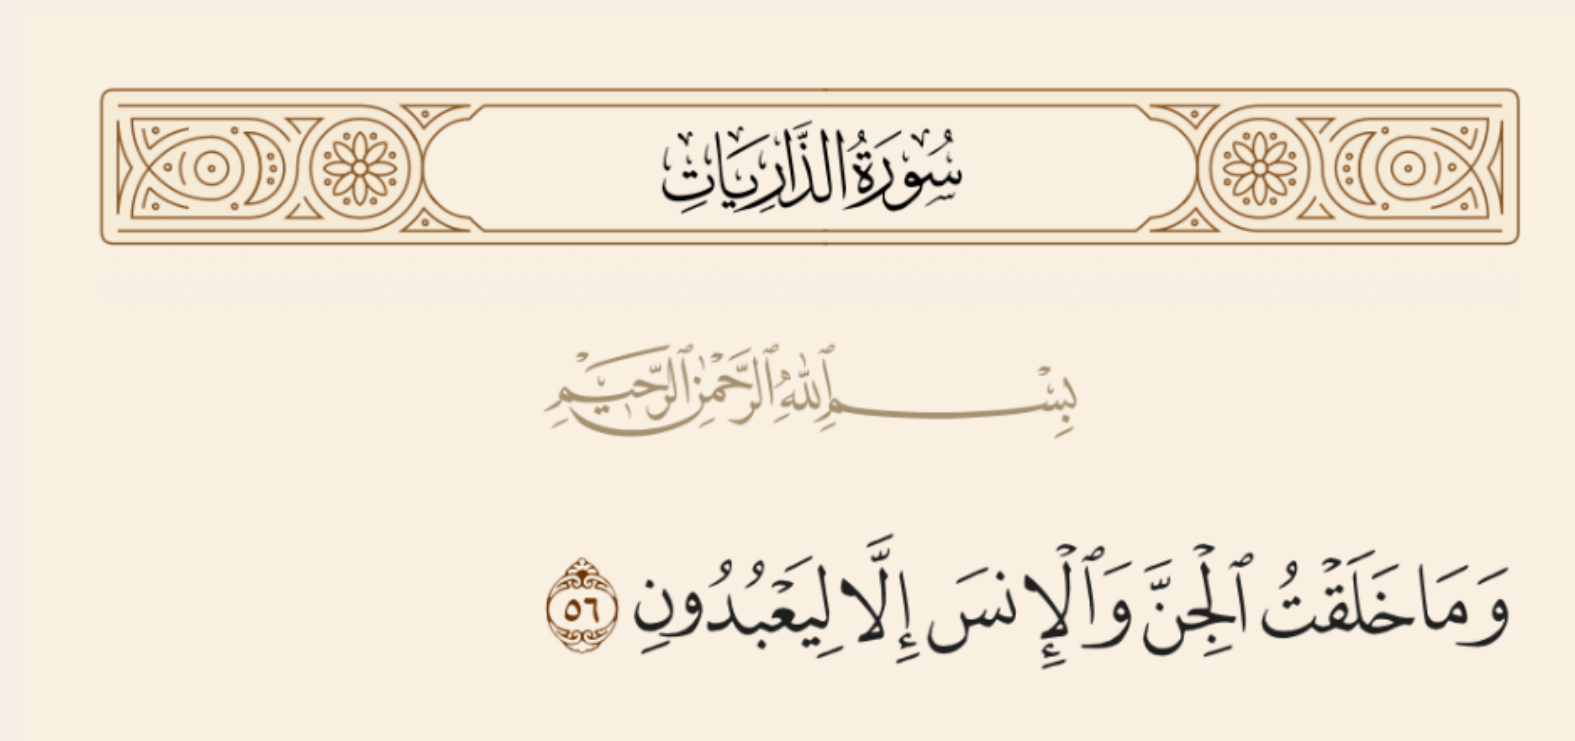 سُورَةُ الذَّارِيَاتِ
بِسْمِ ٱللَّهِ ٱلرَّحْمَٰنِ ٱلرَّحِيمِ
وَمَا خَلَقْتُ ٱلْجِنَّ وَٱلْإِنسَ إِلَّا لِيَعْبُدُونِ ٥٦